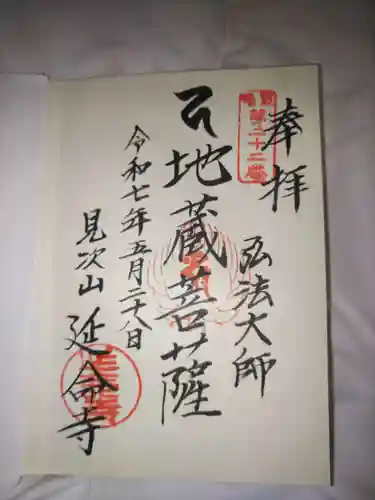 奉拝
第二十二番
弘法大師
地蔵菩薩
令和七年五月二十八日
見次山
延命寺